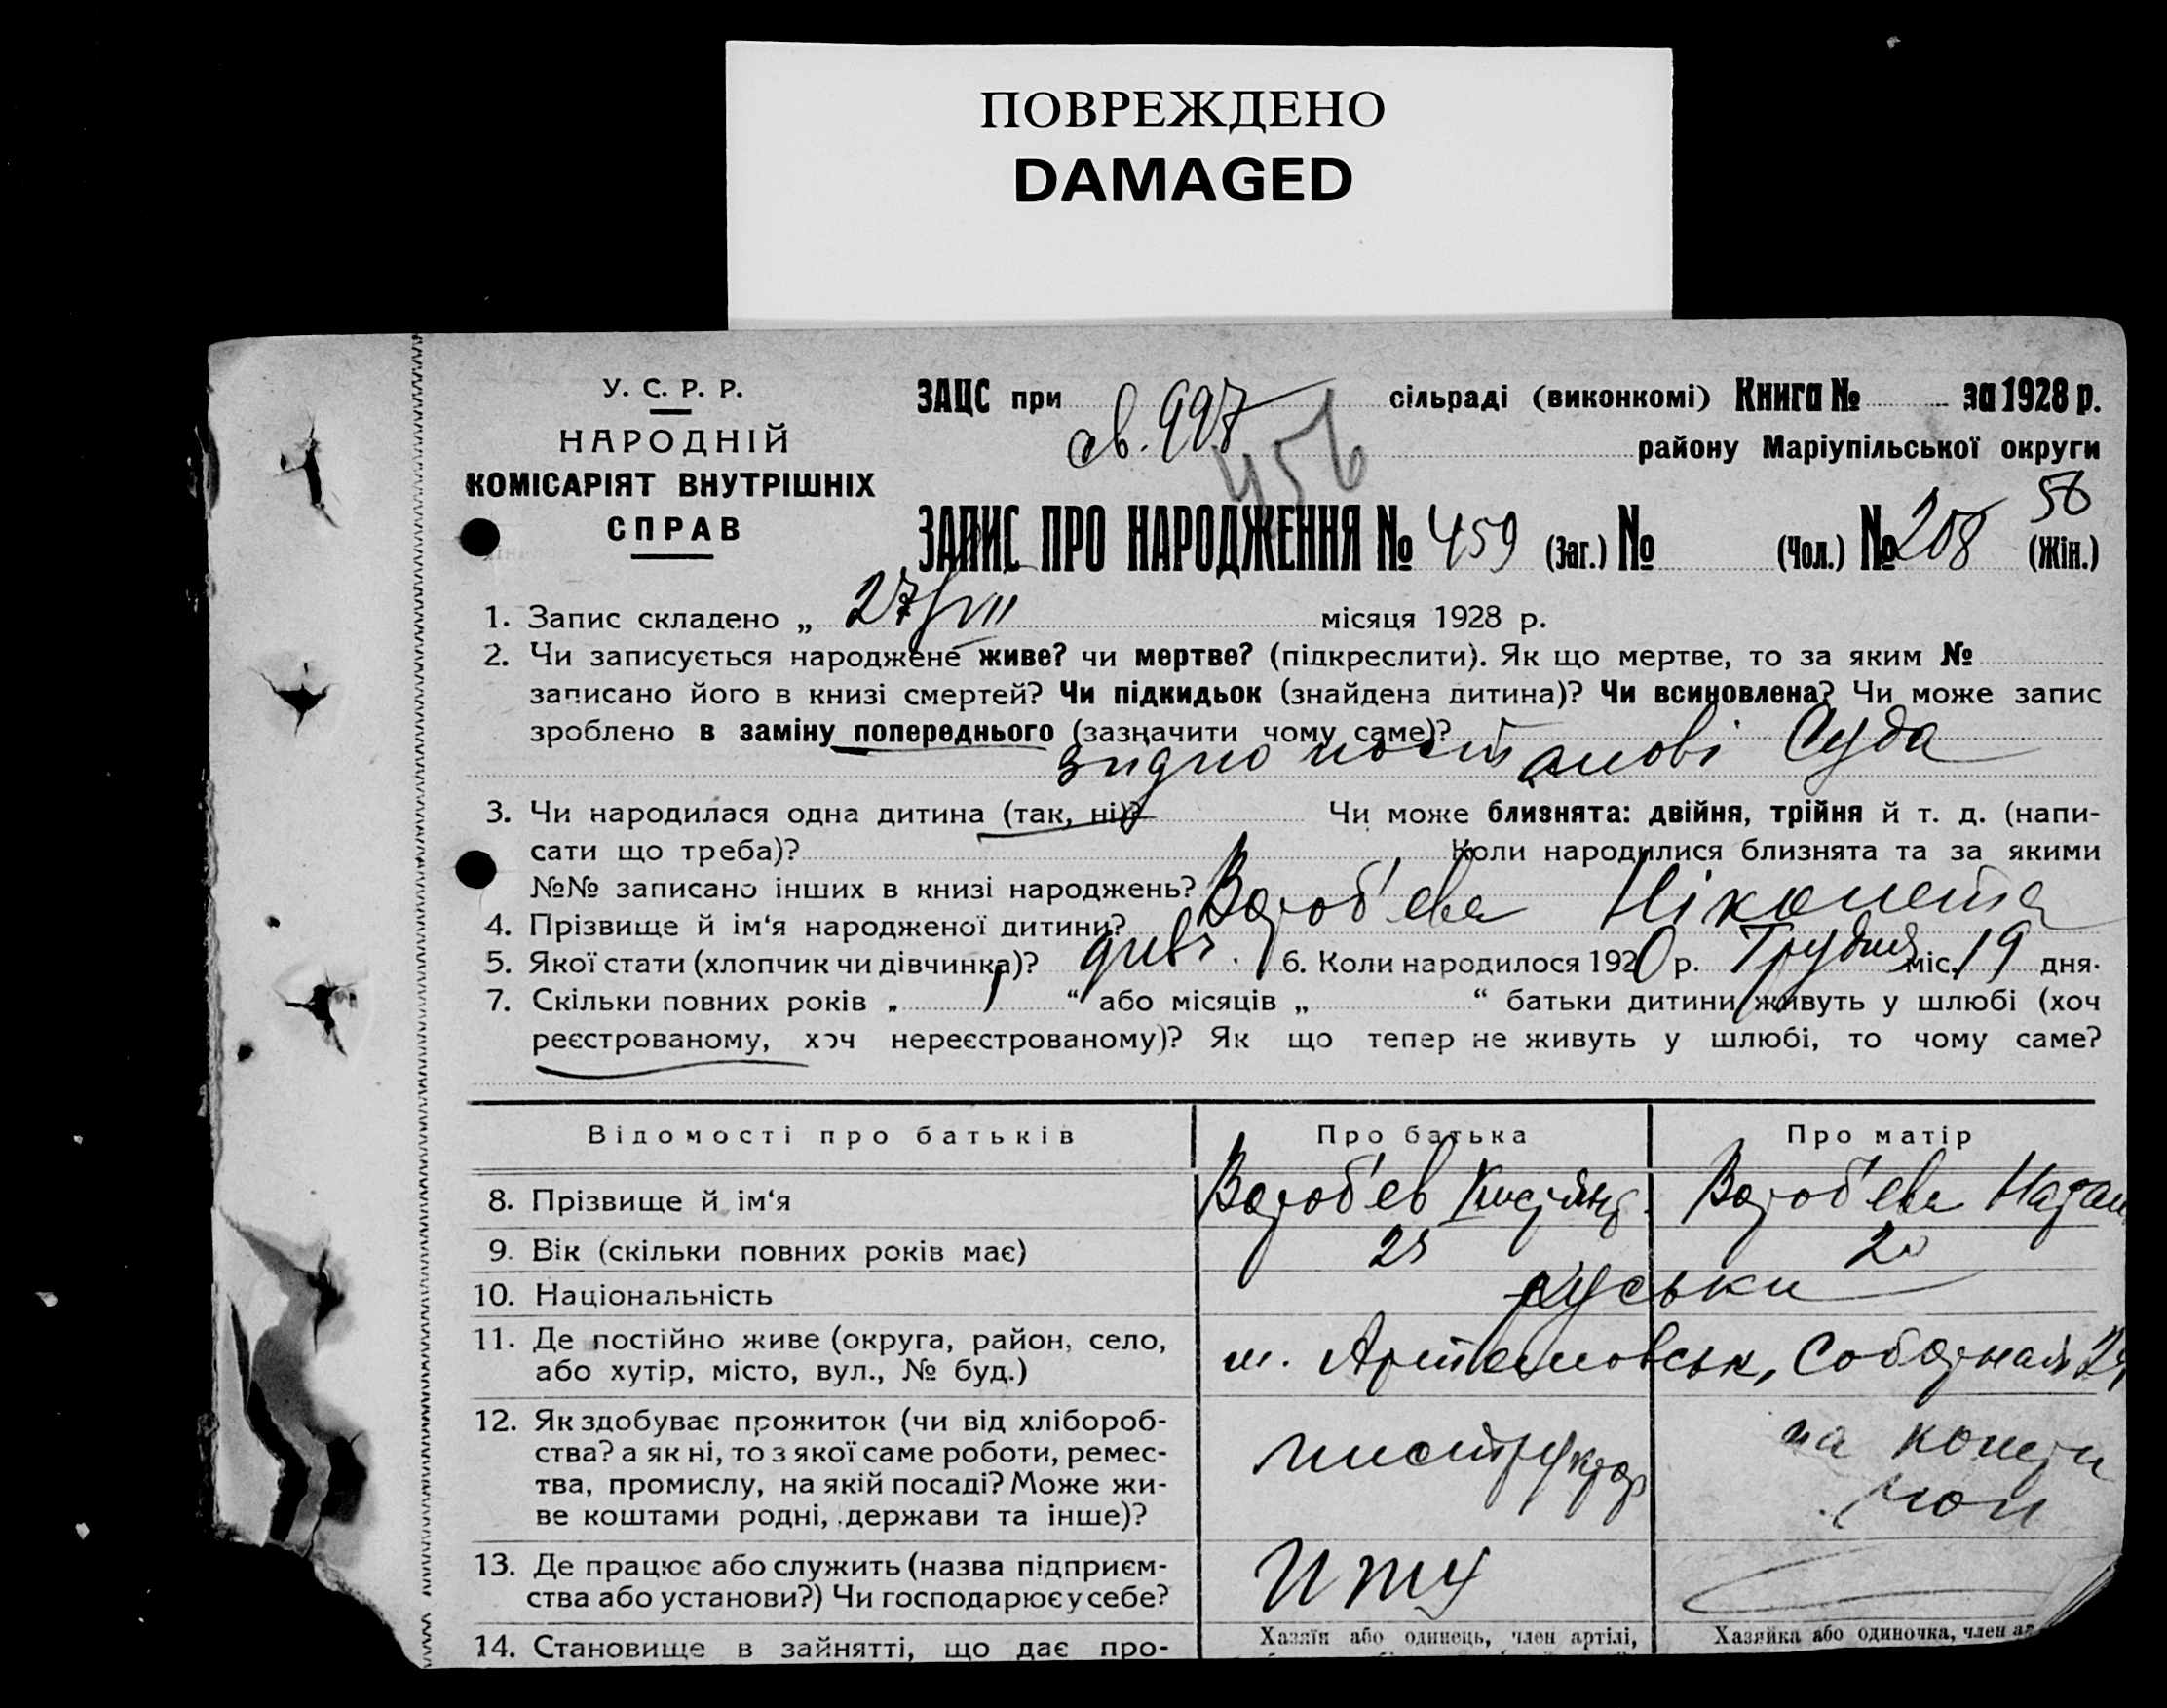 ПОВРЕЖДЕНО
DAMAGED
У. С. Р. Р.
НАРОДНІЙ
КОМІСАРІЯТ ВНУТРІШНІХ
СПРАВ
ЗАЦС при св. 997 сільраді (виконкомі) Книга № за 1928 р.
456
району Маріупільської округи
56
ЗАПИС ПРО НАРОДЖЕННЯ № 459 (Заг.) № (Чол.) № 208 (Жін.)
1. Запис складено „ 27/VII місяця 1928 р.
2. Чи записується народжене живе? чи мертве? (підкреслити). Як що мертве, то за яким №
записано його в книзі смертей? Чи підкидьок (знайдена дитина)? Чи всиновлена? Чи може запис
зроблено в заміну попереднього (зазначити чому саме)?
згидно постанові Суда
3. Чи народилася одна дитина (так, ні)? Чи може близнята: двійня, трійня й т. д. (напи-
сати що треба)? Коли народилися близнята та за якими
№№ записано інших в книзі народжень?
4. Прізвище й ім‘я народженої дитини? Вороб'ева
5. Якої стати (хлопчик чи дівчинка)? дивч. 6. Коли народилося 1920 р. Грудня міс. 19 дня.
7. Скільки повних років „ 1 “ або місяців „ “ батьки дитини живуть у шлюбі (хоч
реєстрованому, хоч нереєстрованому)? Як що тепер не живуть у шлюбі, то чому саме?
Відомості про батьків Про батька Про матір
8. Прізвище й ім‘я Вороб'ев Вороб'ева Натал
9. Вік (скільки повних років має) 25 20
10. Національність руськи
11. Де постійно живе (округа, район, село, м. Артемовськ, Соборная 24
або хутір, місто, вул., № буд.)
12. Як здобуває прожиток (чи від хлібороб-
ства? а як ні, то з якої саме роботи, ремес-
тва, промислу, на якій посаді? Може жи-
ве коштами родні, держави та інше)?
инструктор
на
13. Де працює або служить (назва підприєм-
ства або установи?) Чи господарює у себе?
14. Становище в зайнятті, що дає про-
Хазяїн або одинець, член артілі,
Хазяйка або одиночка, член